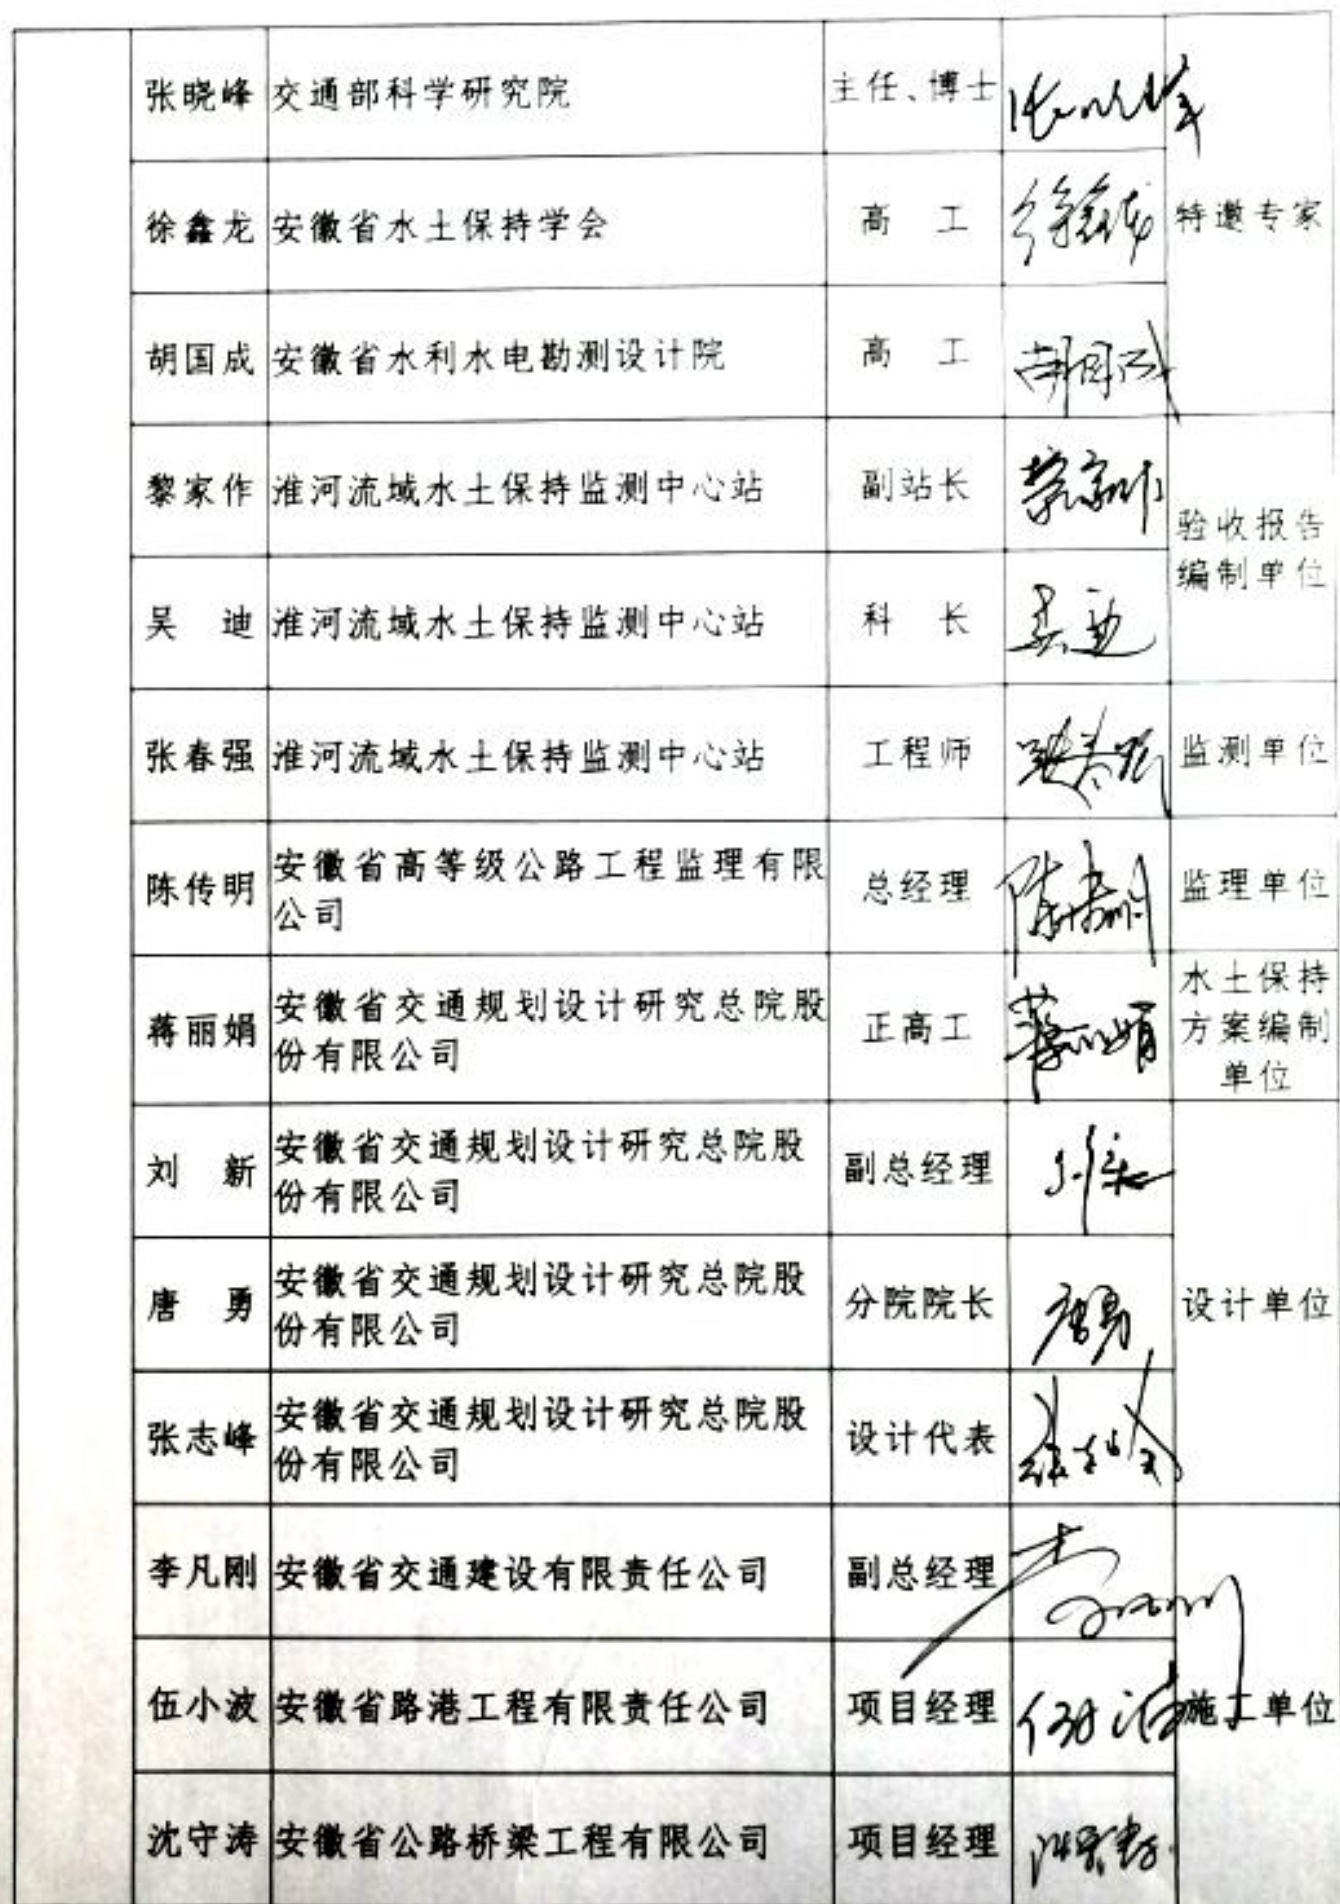 张晓峰 交通部科学研究院 主任、博士 张晓峰
徐鑫龙 安徽省水土保持学会 高 工 徐鑫龙 特邀专家
胡国成 安徽省水利水电勘测设计院 高 工 胡国成
黎家作 淮河流域水土保持监测中心站 副站长 黎家作
验收报告
编制单位
吴 迪 淮河流域水土保持监测中心站 科 长 吴迪
张春强 淮河流域水土保持监测中心站 工程师 张春强 监测单位
陈传明 安徽省高等级公路工程监理有限
公司 总经理 陈传明 监理单位
蒋丽娟 安徽省交通规划设计研究总院股
份有限公司 正高工 蒋丽娟 水土保持
方案编制
单位
刘 新 安徽省交通规划设计研究总院股
份有限公司 副总经理 刘新
唐 勇 安徽省交通规划设计研究总院股
份有限公司 分院院长 唐勇 设计单位
张志峰 安徽省交通规划设计研究总院股
份有限公司 设计代表 张志峰
李凡刚 安徽省交通建设有限责任公司 副总经理
伍小波 安徽省路港工程有限责任公司 项目经理 伍小波 施工单位
沈守涛 安徽省公路桥梁工程有限公司 项目经理 沈守涛